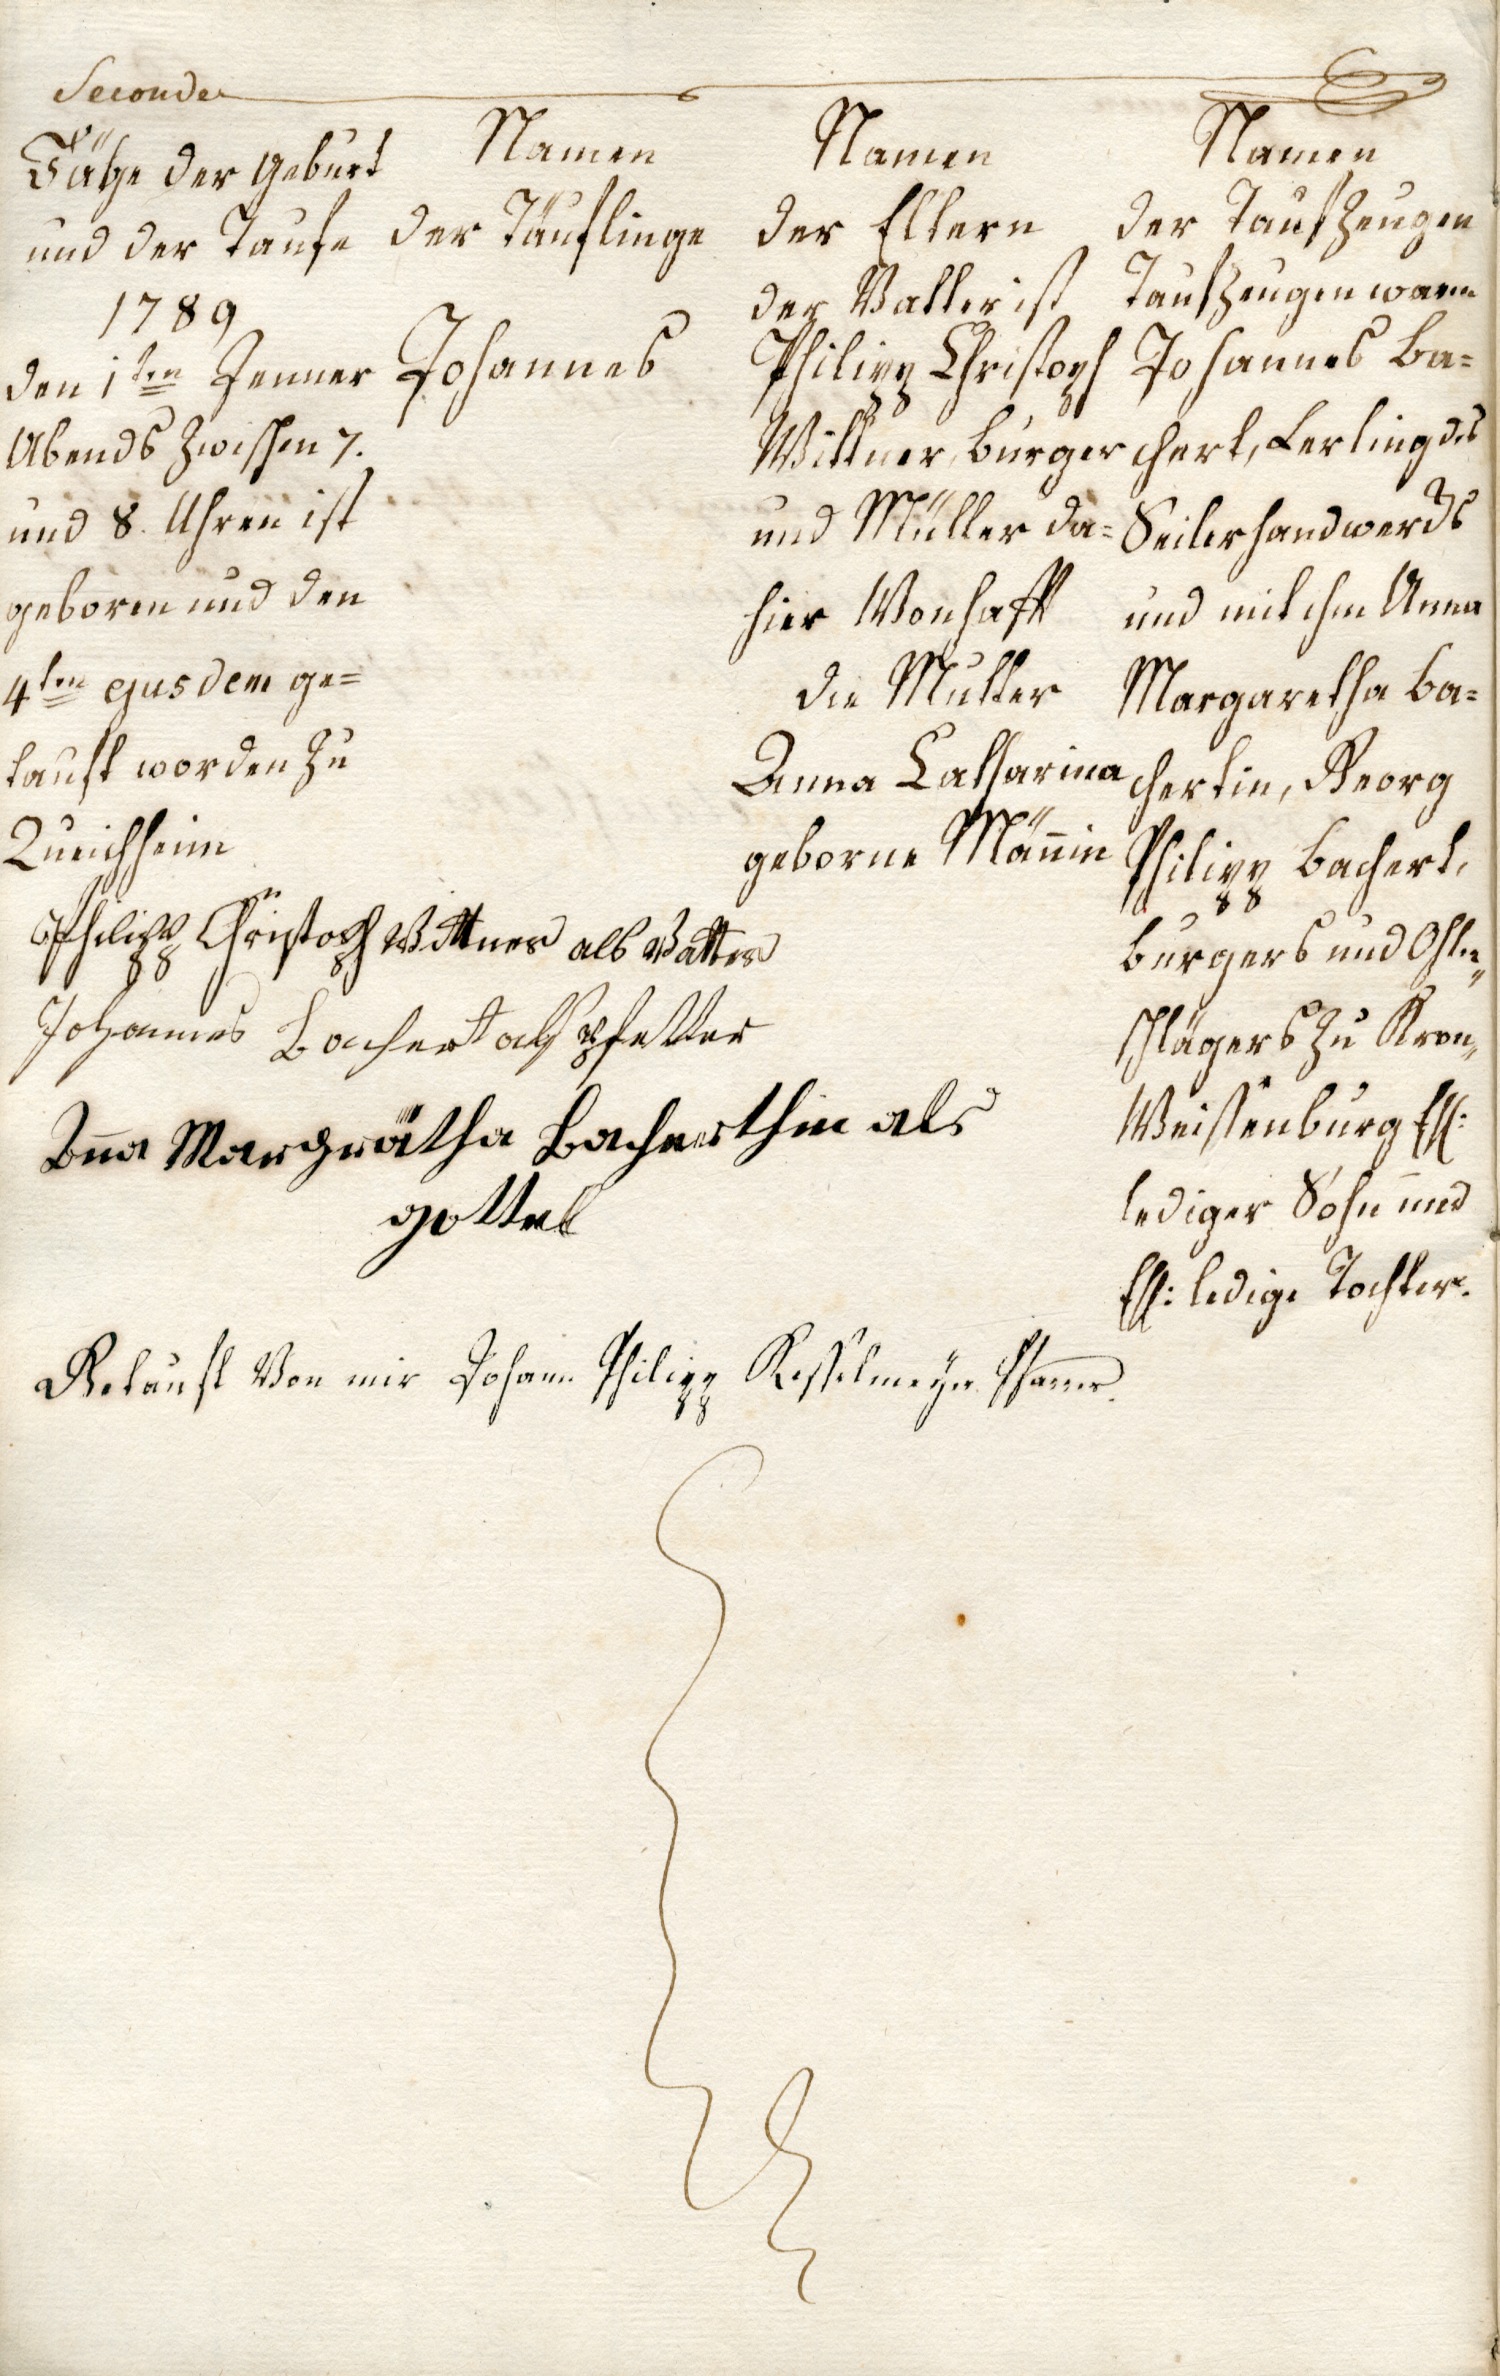 Seconde
Täge der Geburt
und der Taufe
1789
den 1ten Jenner
Abends zwischen 7.
und 8. Uhren ist
geboren und den
4ten ejusdem ge=
tauft worden zu
Queichheim
Namen
der Täuflinge
Johannes
Namen
der Eltern
der Vatter ist
Philipp Christoph
Wittner, burger
und Müller da=
hier Wonhafft
die Mutter
Anna Catharina
geborne Männin
Namen
der Taufzeugen
Taufzeugen waren
Johannes Ba=
chert, Lerling des
Seilerhandwercks
und mit ihm Anna
Margaretha Ba=
chertin, Georg
Philipp Bachert,
burgers und Ohlen„
schlägers zu Kron„
Weissenburg Ehl:
lediger Sohn und
Ehl: ledige Tochter.
Philipp Christoph Wittner als Vatter
Johannes Bachert als Pfetter
Anna Margrätha Bacherthin als
gottel
Getauft Von mir Johann Philipp Kesselmeyer Pfarrer.